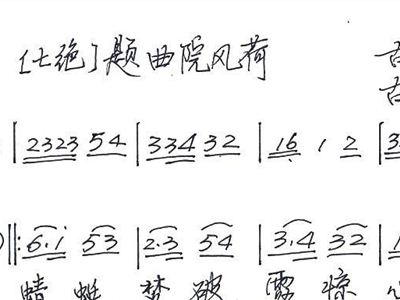 [七绝]题曲院风荷
古
古
| 2323 54 | 334 32 | 16 1 2 | 3
‖: 6·i 53 | 2·3 54 | 3·4 32 | 1
蜻蜓梦破露惊心